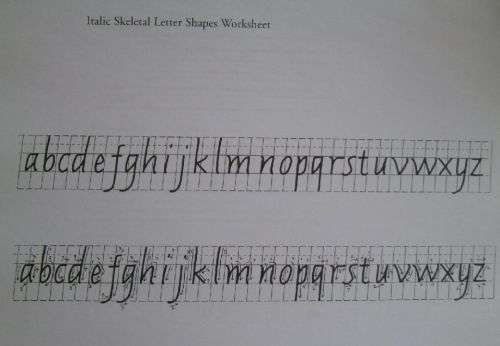 Italic Skeletal Letter Shapes Worksheet
abcdefghijklmnopqrstuvwxyz
abcdefghijklmnopqrstuvwxyz